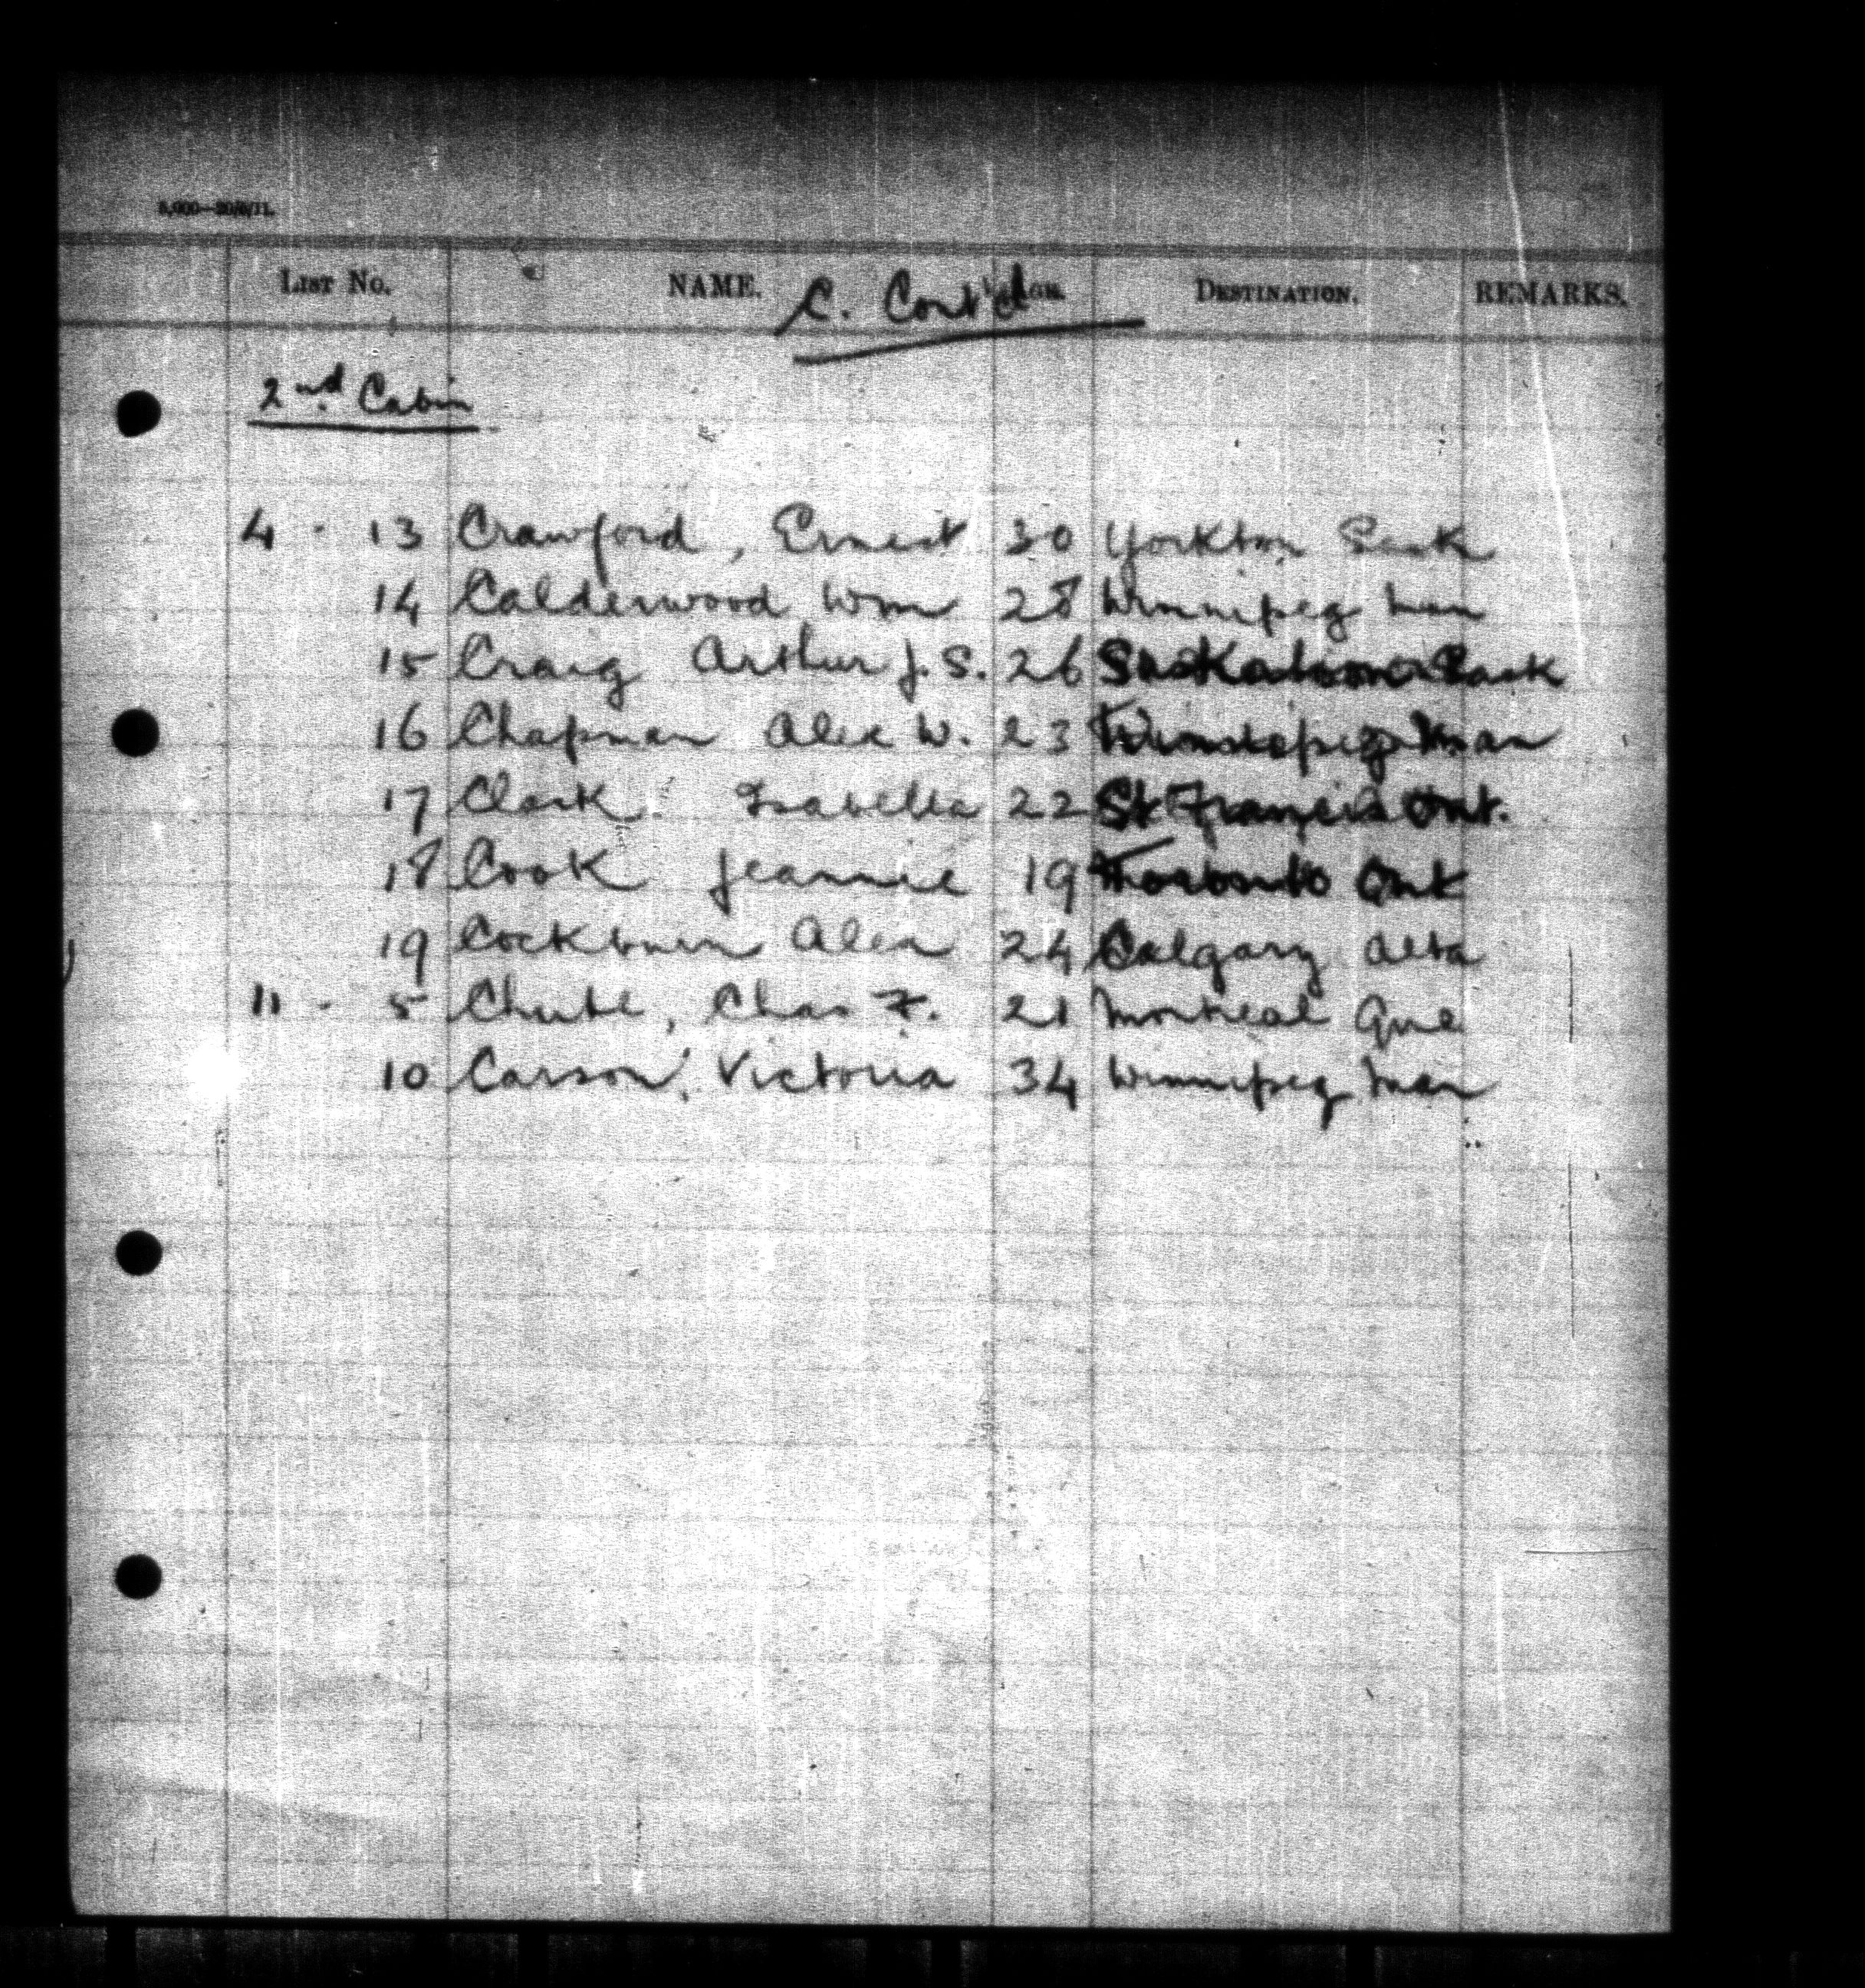 5,000—20/6/11.
LIST No. NAME. AGE. DESTINATION. REMARKS.
C. Cont'd
2nd Cabin
4 - 13 Crawford, Ernest 30 Yorkton Sask
14 Calderwood Wm 28 Winnipeg Man
15 Craig Arthur J. S. 26 Saskatoon Sask
16 Chapman Alex W. 23 Winnipeg Man
17 Clark Isabella 22 St Francis Ont.
18 Cook Jeannie 19 Toronto Ont
19 Cockburn Alex 24 Calgary Alta
11 - 5 Chute, Chas F. 21 Montreal Que
10 Carson, Victoria 34 Winnipeg Man